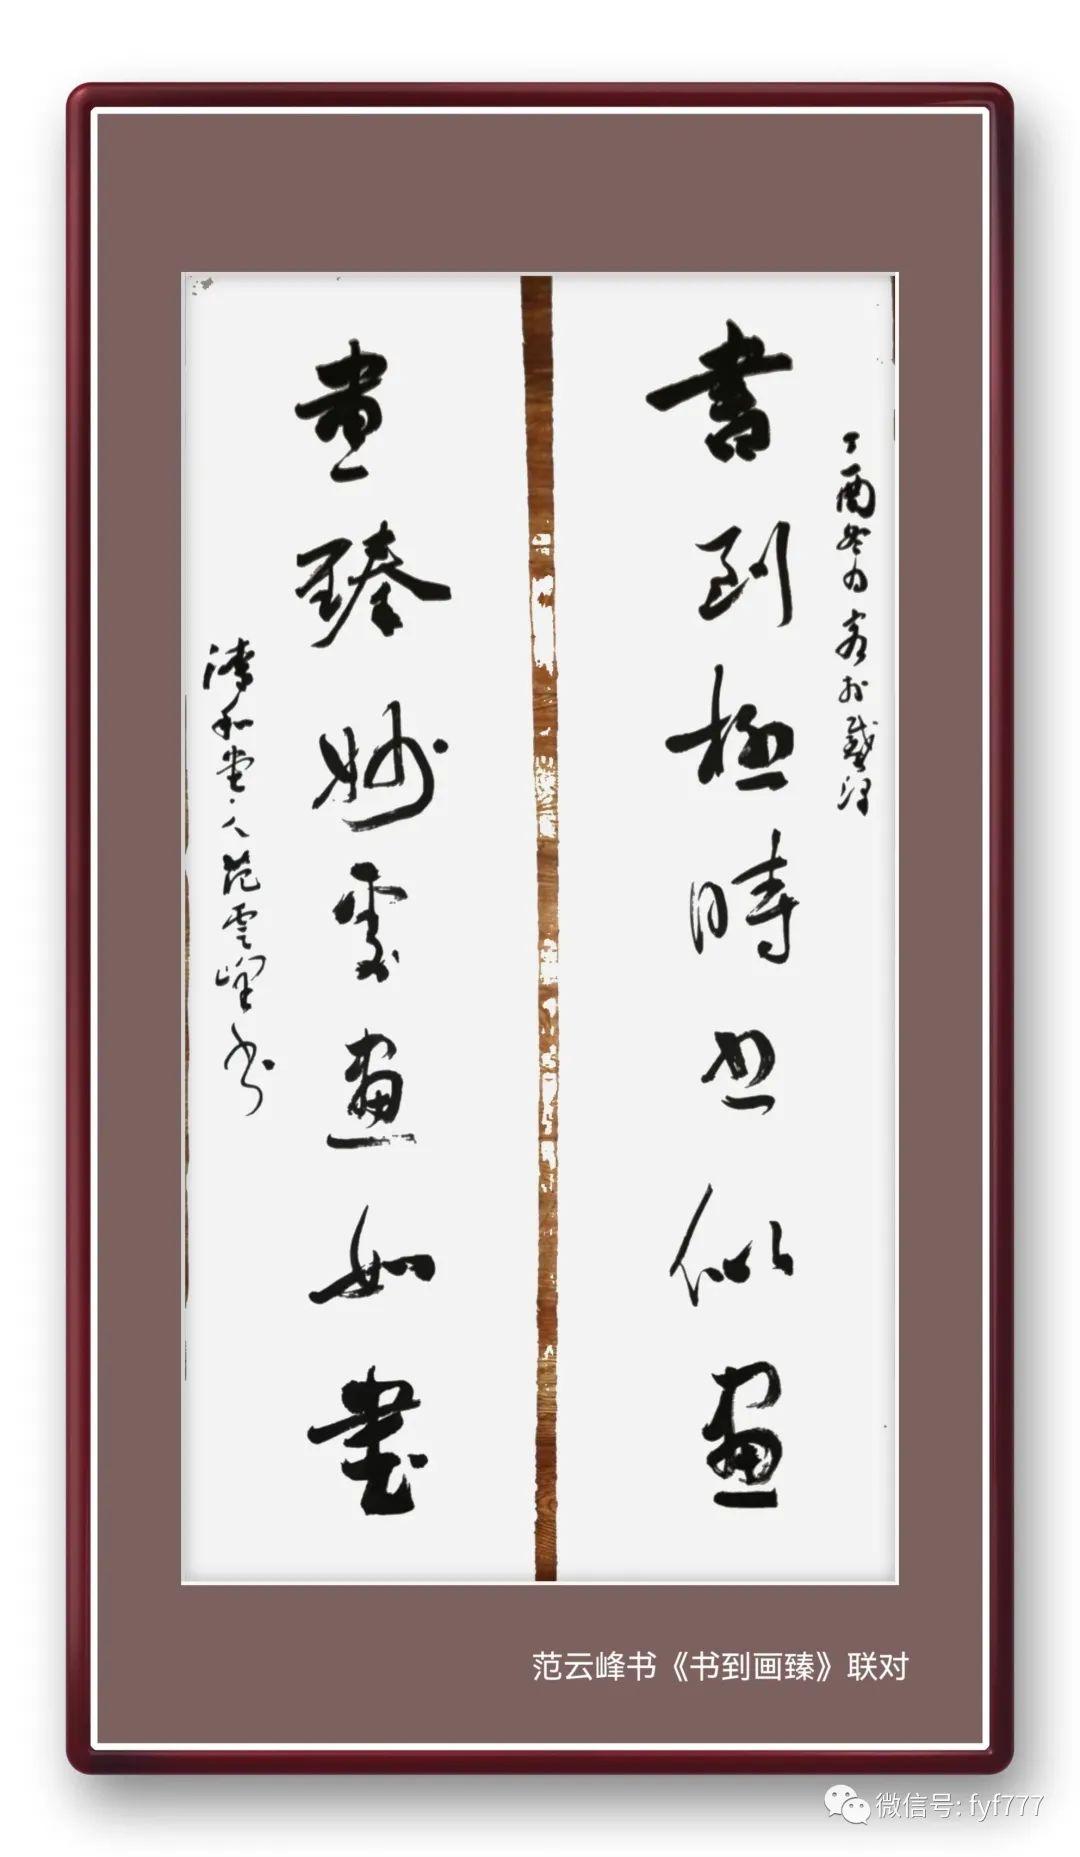 丁酉冬为客於
書到極時也似畫
畫臻妙處畫如書
和堂主人范雲峰书
范云峰书《书到画臻》联对
微信号: fyf777